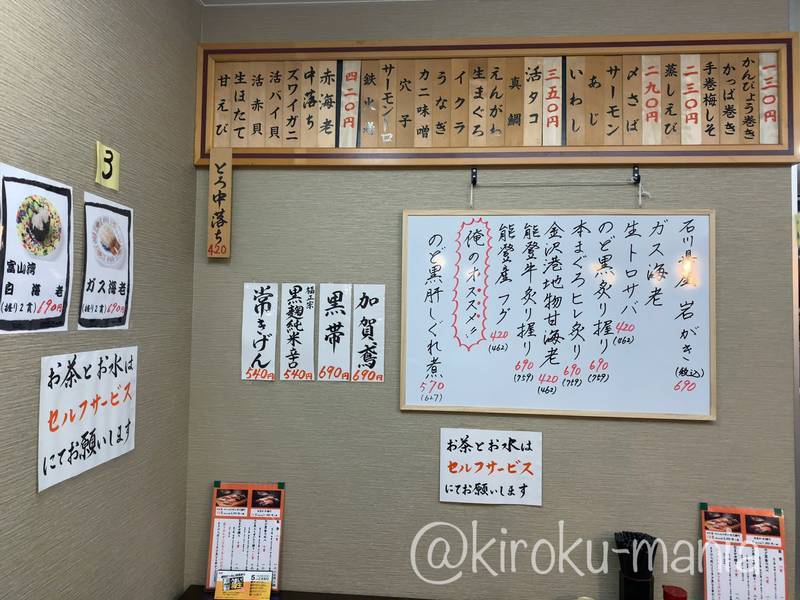 一三〇円
かんぴょう巻き
かっぱ巻き
手巻梅しそ
二三〇円
蒸しえび
二九〇円
〆さば
サーモン
あじ
いわし
三五〇円
活タコ
真鯛
えんがわ
生まぐろ
イクラ
うなぎ
カニ味噌
穴子
サーモントロ
鉄火巻
四二〇円
赤海老
中落ち
ズワイガニ
活バイ貝
活赤貝
生ほたて
甘えび
とろ中落ち
420
3
富山湾
白海老
(握り2貫)690円
ガス海老
(握り2貫)690円
お茶とお水は
セルフサービス
にてお願いします
加賀鳶
690円
黒帯
690円
福正宗
黒麹純米辛口
540円
常きげん
540円
石川県産 岩がき(税込)
690
ガス海老
生トロサバ
420
(462)
のど黒炙り握り
690
(759)
本まぐろヒレ炙り
690
(759)
金沢港地物甘海老
420
(462)
能登牛炙り握り
690
(759)
能登産フグ
420
(462)
俺のオススメ!!
のど黒肝しぐれ煮
570
(627)
お茶とお水は
セルフサービス
にてお願いします
@kiroku-mania